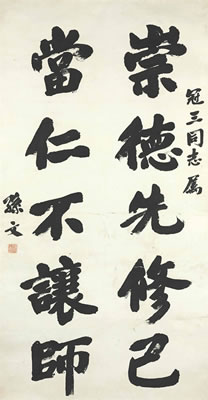 冠三同志屬
崇德先修己
當仁不讓師
孫文